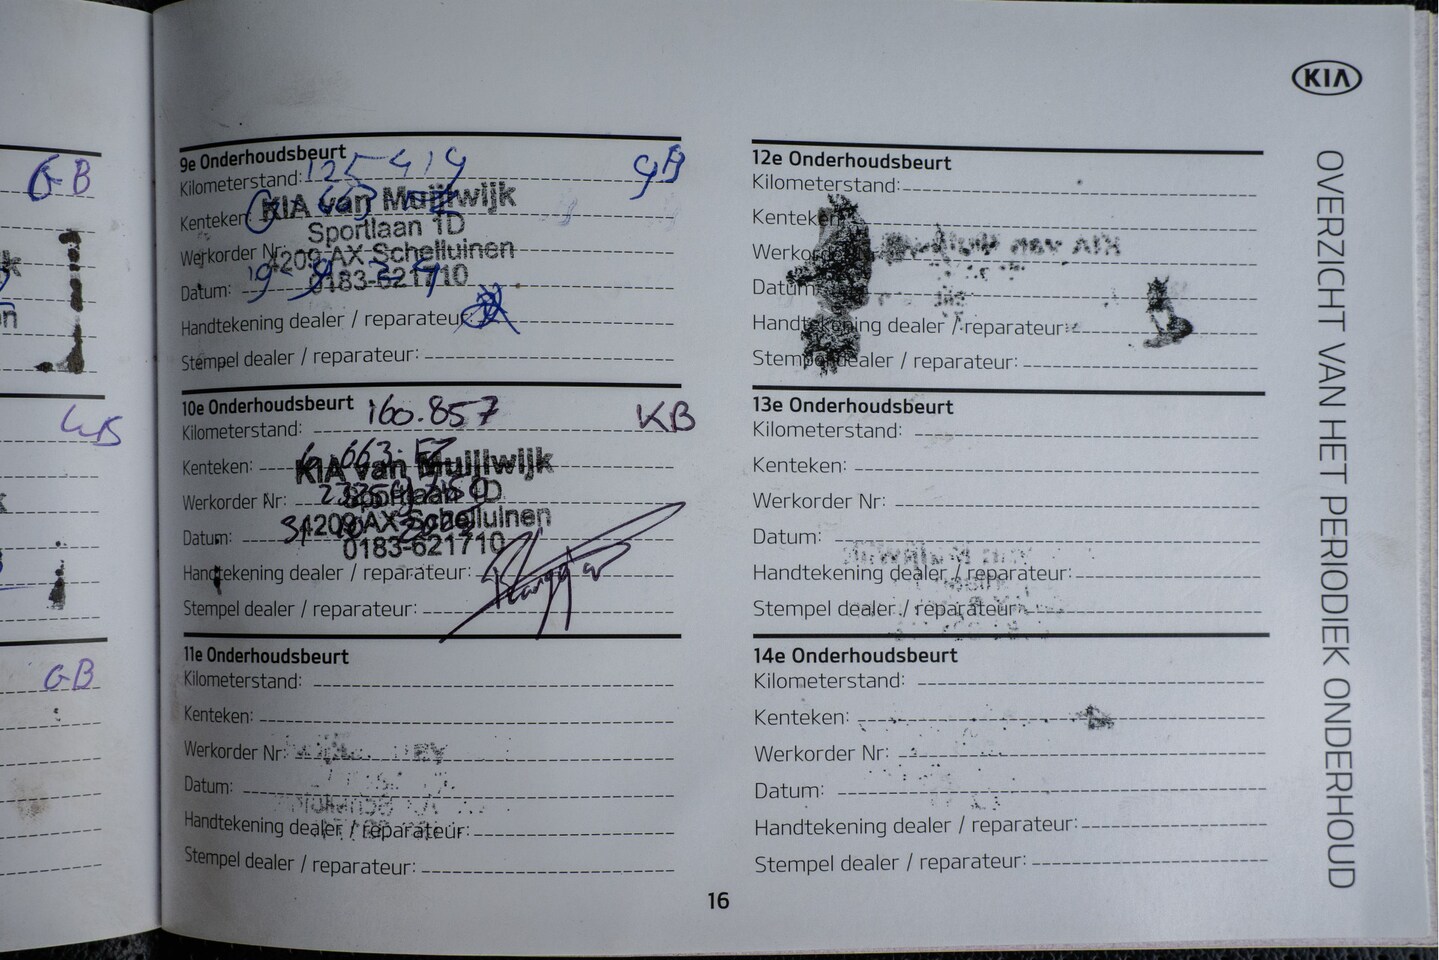 KIA
OVERZICHT VAN HET PERIODIEK ONDERHOUD
GB
GB
GB
9e Onderhoudsbeurt
Kilometerstand: 125-419 GB
Kenteken:
KIA van Muijlwijk
Sportlaan 1D
Werkorder Nr:
4209-AX-Schelluinen
Datum:
0183-621710
Handtekening dealer / reparateur:
Stempel dealer / reparateur:
10e Onderhoudsbeurt
Kilometerstand: 160.857 KB
Kenteken:
KIA van Muijlwijk
Werkorder Nr:
Sportlaan 1D
4209-AX-Schelluinen
Datum:
0183-621710
Handtekening dealer / reparateur:
Stempel dealer / reparateur:
11e Onderhoudsbeurt
Kilometerstand:
Kenteken:
Werkorder Nr:
Datum:
Handtekening dealer / reparateur:
Stempel dealer / reparateur:
12e Onderhoudsbeurt
Kilometerstand:
Kenteken:
Werkorder
Datum:
Handtekening dealer / reparateur:
Stempel dealer / reparateur:
13e Onderhoudsbeurt
Kilometerstand:
Kenteken:
Werkorder Nr:
Datum:
Handtekening dealer / reparateur:
Stempel dealer / reparateur:
14e Onderhoudsbeurt
Kilometerstand:
Kenteken:
Werkorder Nr:
Datum:
Handtekening dealer / reparateur:
Stempel dealer / reparateur:
16